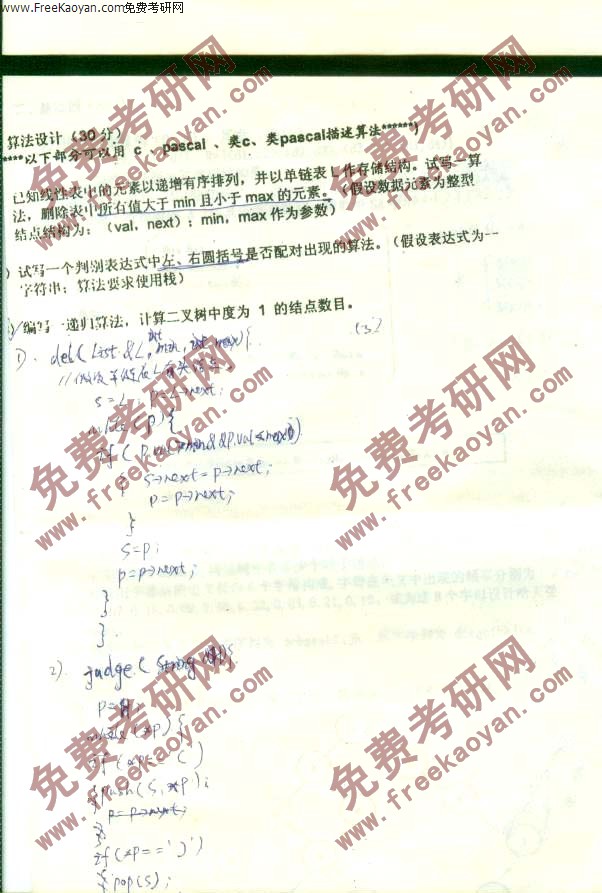 www.FreeKaoyan.com免费考研网
算法设计（30分）
****以下部分可以用 c 、pascal 、类c、类pascal描述算法******）
已知线性表中的元素以递增有序排列，并以单链表L作存储结构。试写一算
法，删除表中所有值大于 min 且小于 max 的元素。（假设数据元素为整型
结点结构为：（val，next）；min，max 作为参数）
）试写一个判别表达式中左、右圆括号是否配对出现的算法。（假设表达式为一
字符串；算法要求使用栈）
编写一递归算法，计算二叉树中度为 1 的结点数目。
1).
del( List &L, int min, int max){
s=L; p=L->next;
while(p){
if(
{ s->next=p->next;
p=p->next;
}
s=p;
p=p->next;
}
}
2). judge( String
p=
while(*p){
if(*p=='(')
{push(S,*p);
p=p->next;
}
if(*p==')')
{ pop(S);
免费考研网
www.freekaoyan.com
免费考研网
www.freekaoyan.com
免费考研网
www.freekaoyan.com
免费考研网
www.freekaoyan.com
免费考研网
www.freekaoyan.com
免费考研网
www.freekaoyan.com